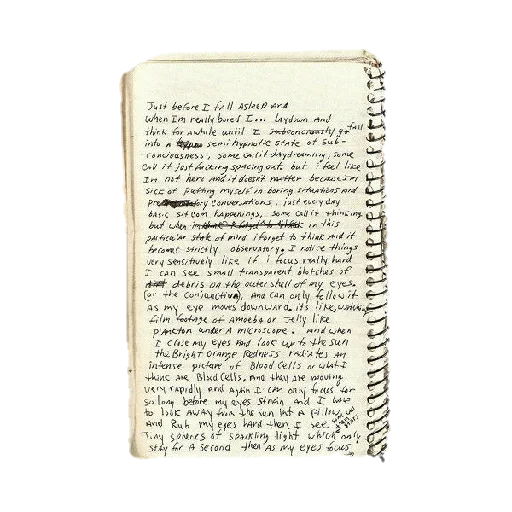 Just before I fall Asleep and
when Im really bored I... laydown And
think for awhile until I subconsciously fall
into a semi hypnotic state of sub-
consciousness, some call it daydreaming, some
call it just fucking spacing out but i feel like
Im not here and it doesnt matter because im
sick of putting myself in boring situations and
conversations, just every day
basic sitcom happenings, some call it thinking
but when in this
particular state of mind i forget to think And it
becomes strictly observatory. I notice things
very sensitively like if i focus really hard
I can see small transparent blotches of
debris on the outer shell of my eyes
(or the conjunctiva), And can only follow it
as my eye moves downward, its like watching
film footage of Amoeba or Jelly like
plankton under A microscope. And when
I close my eyes And look up to the sun
the Bright Orange Redness radiates an
intense picture of Blood cells or what I
think are Blood cells. And they are moving
very rapidly and Again I can only focus for
so long before my eyes strain and I have
to look AwAy from the sun into A pillow
And Rub my eyes hard then I see
Tiny spheres of sparkling light which only
stay for A second then As my eyes focus